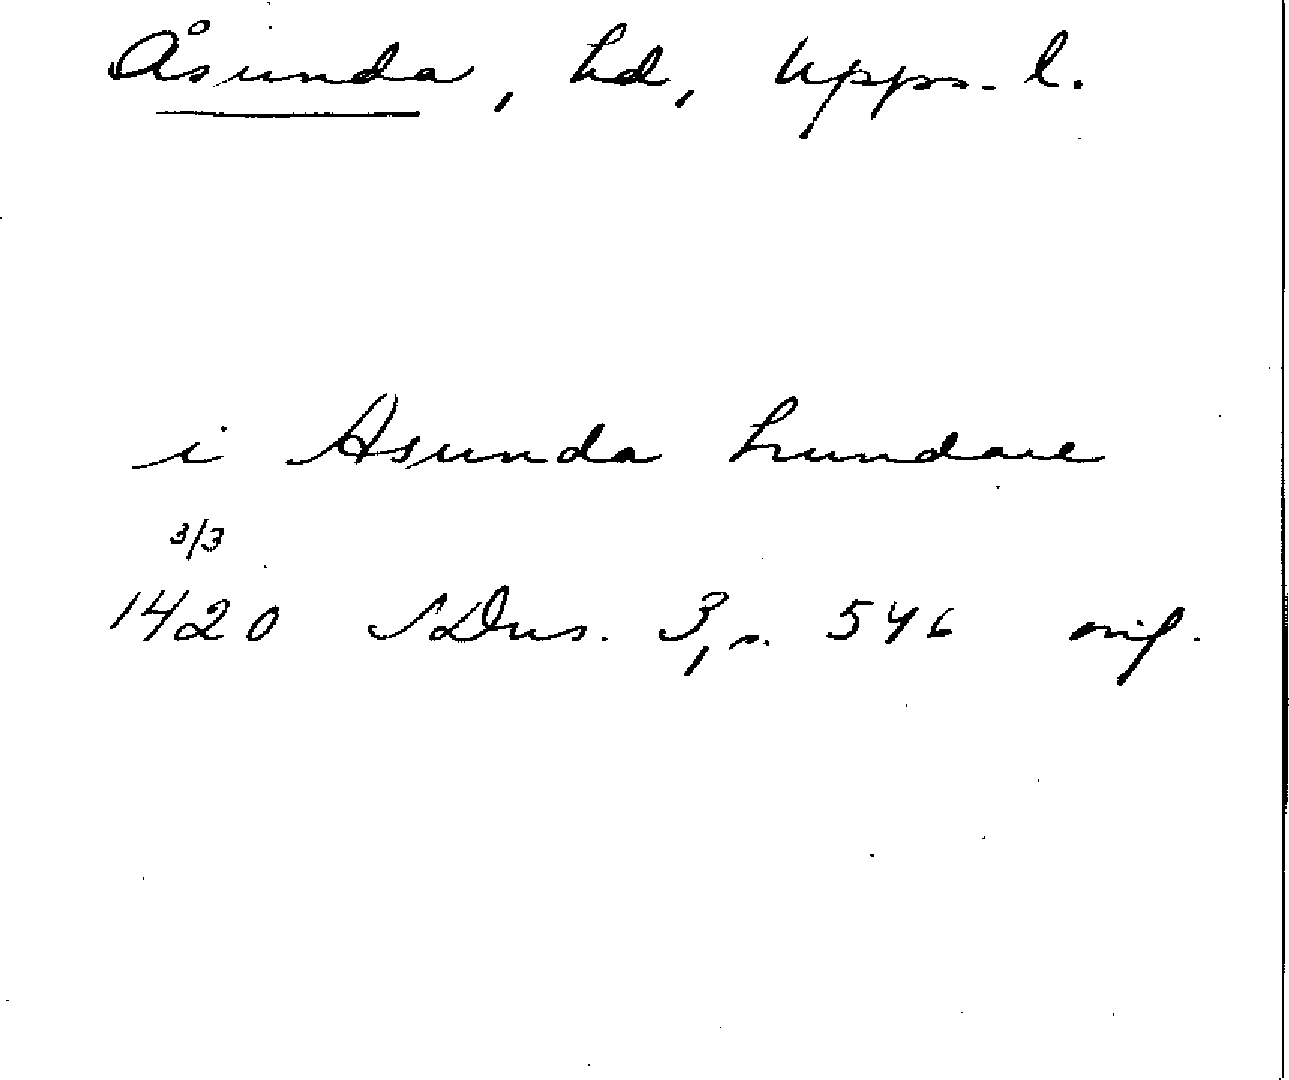 Åsunda, hd, Upps. l.
i Asunda hundare
3/3
1420 SDns. 3, s. 546 orig.